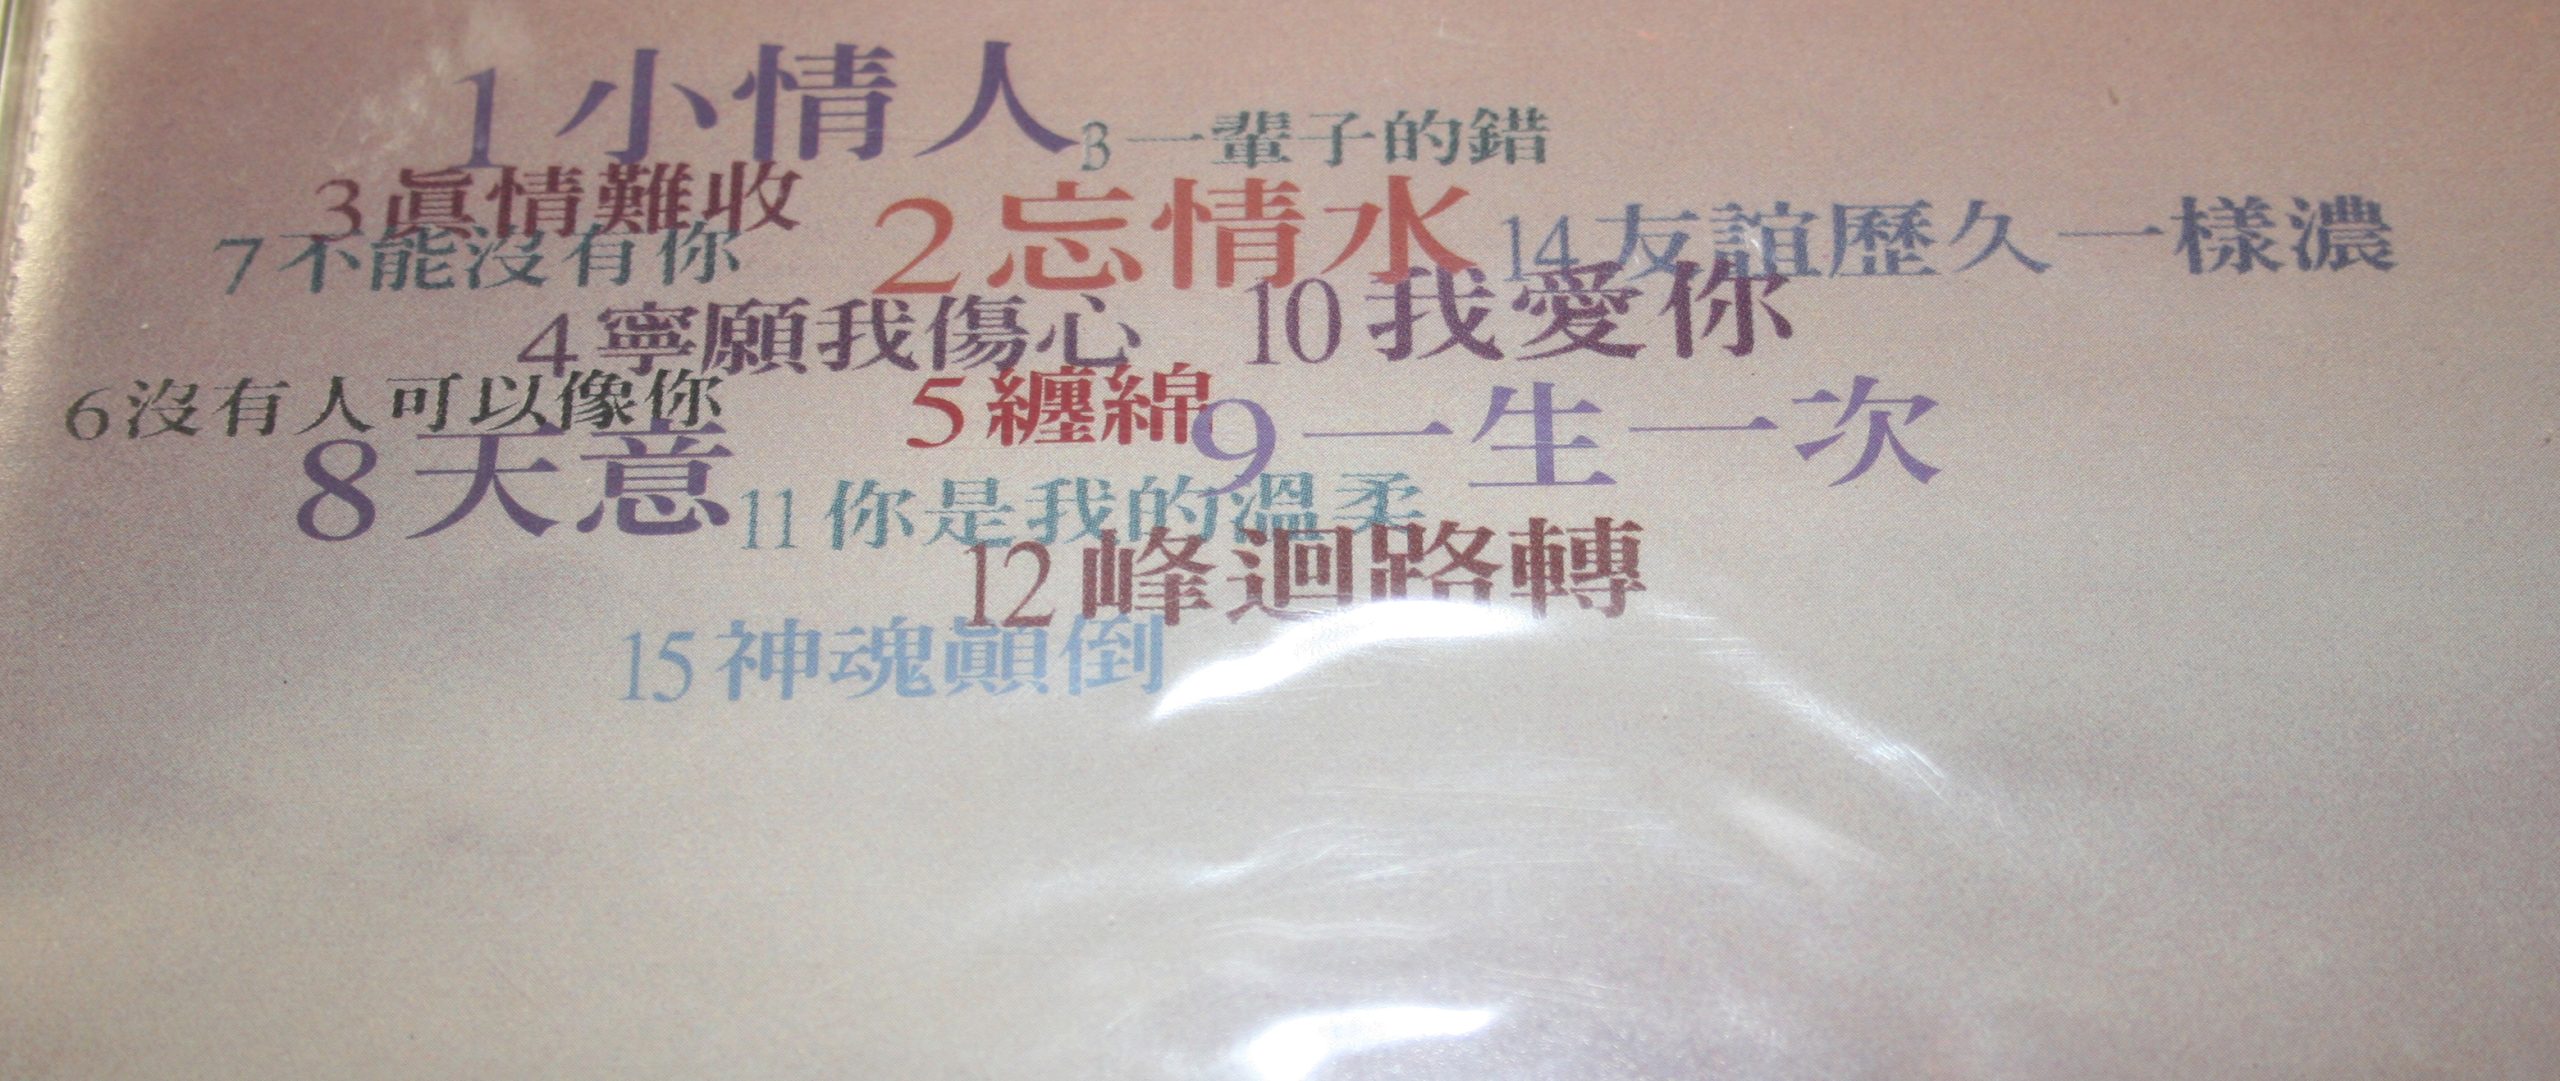 1 小情人
3 一輩子的錯
3 眞情難收
2 忘情水
14 友誼歷久一樣濃
7 不能沒有你
4 寧願我傷心
10 我愛你
6 沒有人可以像你
5 纏綿
9 一生一次
8 天意
11 你是我的溫柔
12 峰迴路轉
15 神魂顚倒